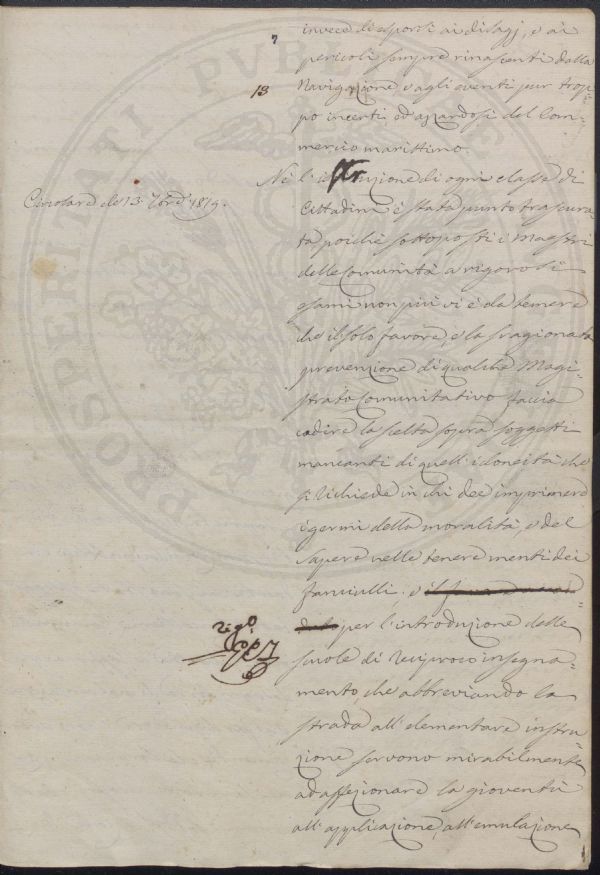 7
13
invece di esporsi ai disagj, e ai
pericoli sempre rinascenti dalla
Navigazione, e agli eventi pur trop-
po incerti, ed azzardosi del Com-
mercio marittimo.
Nè l'istruzione di ogni classe di
Circolare de' 13 7bre 1819.
Cittadini è stata punto trascura-
ta poichè sottoposti i Maestri
delle Comunità a rigorosi
esami non più vi è da temere
che il solo favore, e la sragionata
prevenzione di qualche Magi-
strato Comunitativo faccia
cadere la scelta sopra soggetti
mancanti di quell'idoneità che
si richiede in chi dee imprimere
i germi della moralità, e del
sapere nelle tenere menti dei
fanciulli, e
per l'introduzione delle
scuole di reciproco insegna-
mento, che abbreviando la
strada all'elementare instru-
zione servono mirabilmente
ad affezionare la gioventù
all'applicazione, all'emulazione
PROSPERITATI PUBLICAE